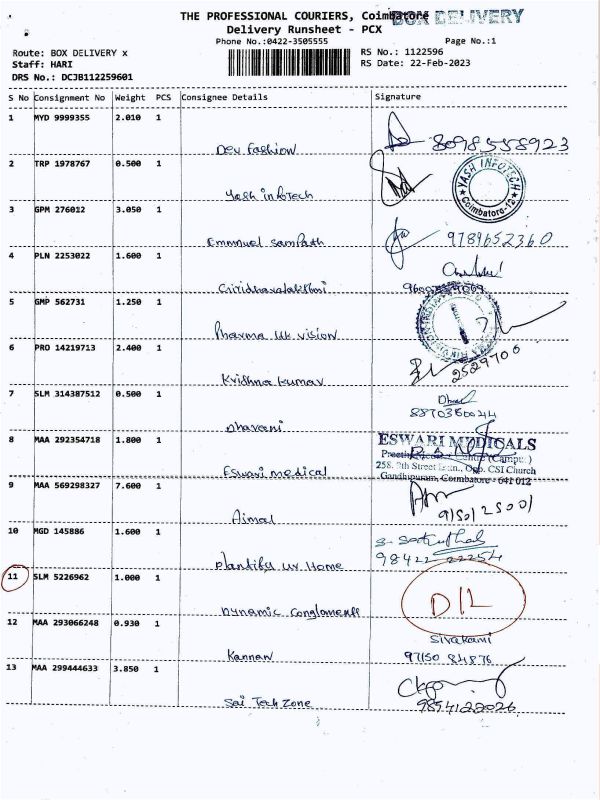 THE PROFESSIONAL COURIERS, Coimbatore
BOX DELIVERY
Delivery Runsheet - PCX
Phone No.:0422-3505555 Page No.:1
Route: BOX DELIVERY x RS No.: 1122596
Staff: HARI RS Date: 22-Feb-2023
DRS No.: DCJB112259601
S No Consignment No Weight PCS Consignee Details Signature
1 MYD 9999355 2.010 1
Dev fashion 8098558923
2 TRP 1978767 0.500 1
Yash infotech
YASH INFOTECH
Coimbatore-12
3 GPM 276012 3.050 1
Emmnuel Sampath 9789652360
4 PLN 2253022 1.600 1
5 GMP 562731 1.250 1
Pharma uk vision
6 PRO 14219713 2.400 1
Krishna kumar 2529706
7 SLM 314387512 0.500 1
Dharani
8 MAA 292354718 1.800 1
ESWARI MEDICALS
258, 7th Street Extn., Opp. CSI Church
Gandhipuram, Coimbatore - 641 012
Eswari medical
9 MAA 569298327 7.600 1
Aimal
10 MGD 145886 1.600 1
Plantify ur Home 98422 22254
11 SLM 5226962 1.000 1
D/L
Dynamic
12 MAA 293066248 0.930 1
Sivakami
Kannan 97150 84876
13 MAA 299444633 3.850 1
Sai Tech Zone